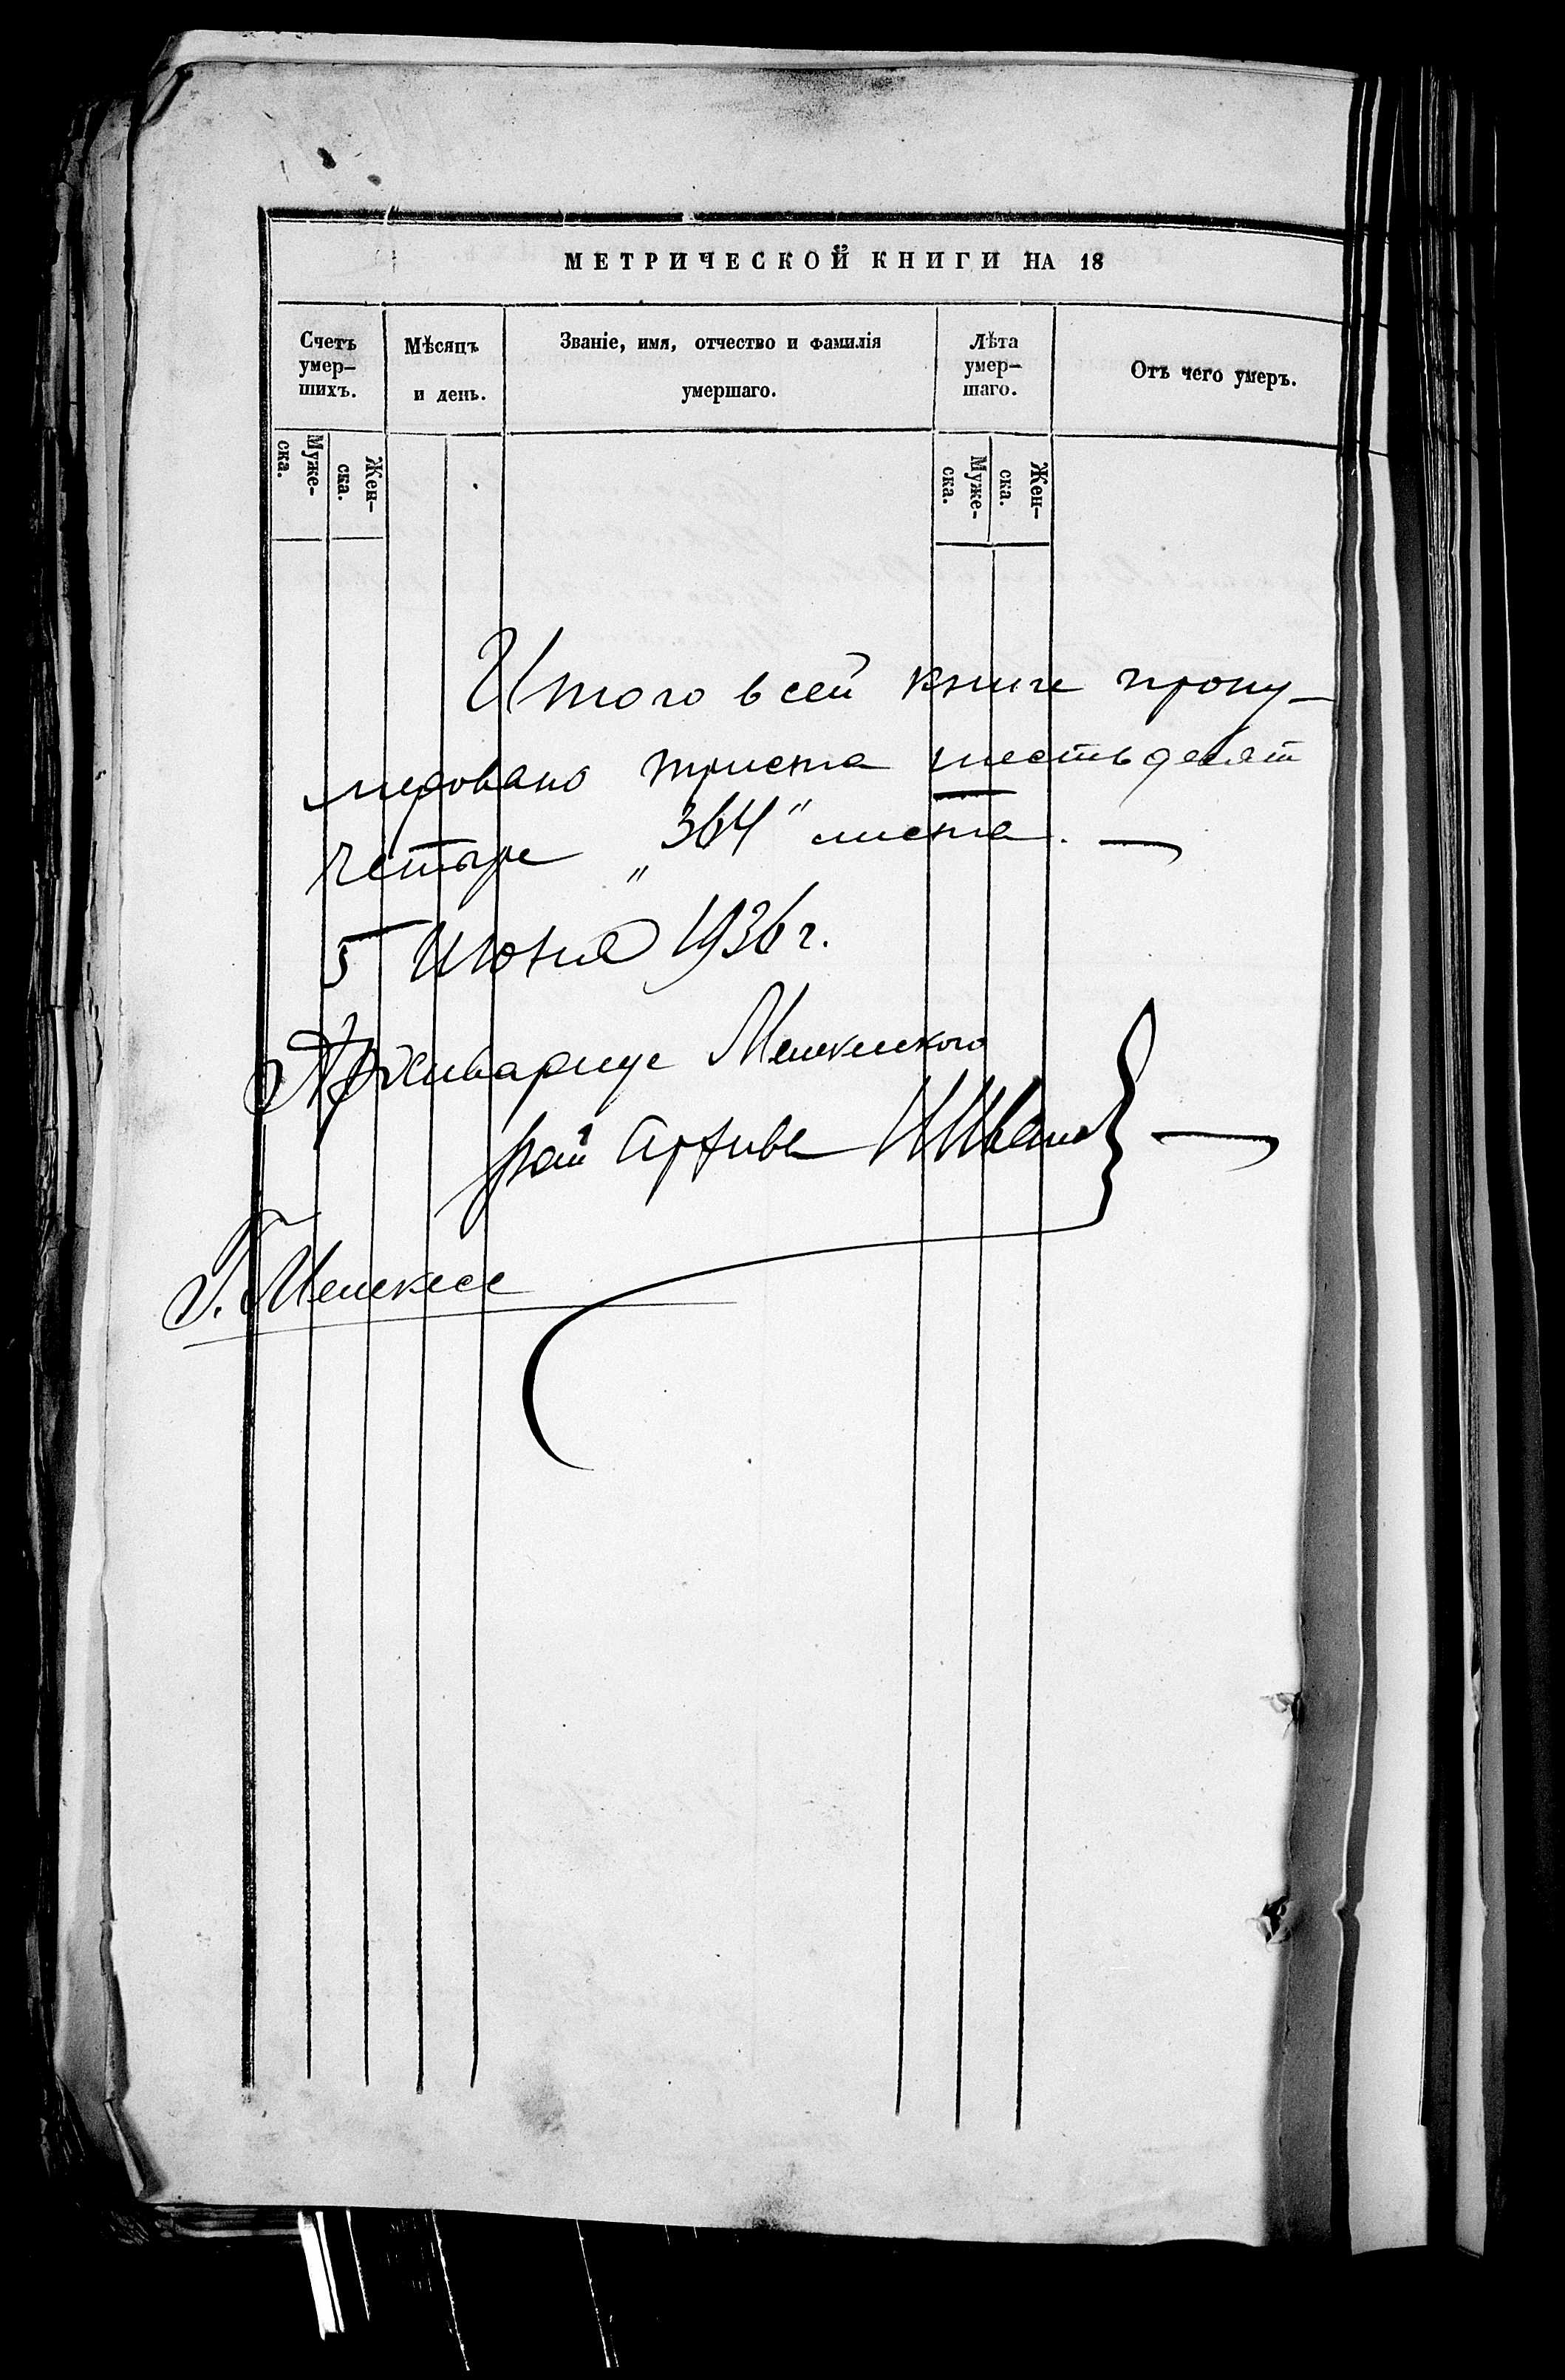 МЕТРИЧЕСКОЙ КНИГИ НА 18
Счетъ умер–шихъ.
Мѣсяцъ и день.
Званіе, имя, отчество и фамилія умершаго.
Лѣта умер–шаго.
Отъ чего умеръ.
Муже-ска.
Жен-ска.
Муже-ска.
Жен-ска.
Итого в сей книге прону-
мировано триста шестьдесят
четыре „364" листа. —
5 Июня 1936 г.
Архивариус Мелекесского
рай Архива Н Иванов —
Г. Мелекесс